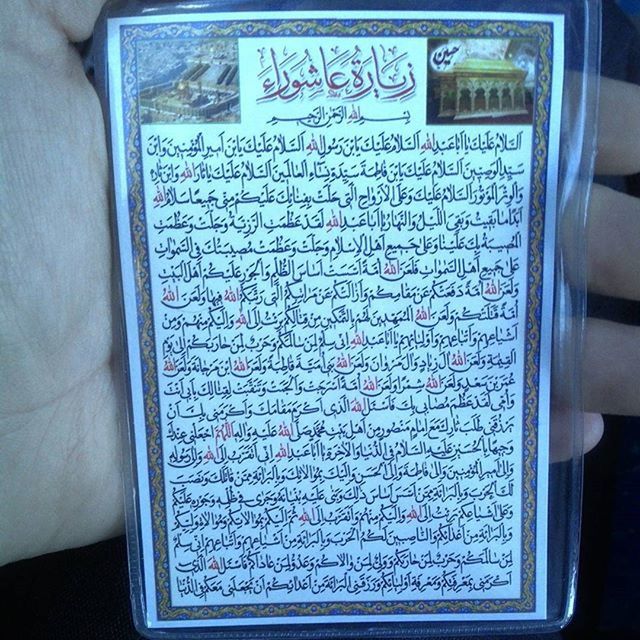 حسین
زیارة عاشوراء
بِسْمِ اللهِ الرَّحْمٰنِ الرَّحیمِ
اَلسَّلامُ عَلَیْكَ یا اَبا عَبْدِاللهِ اَلسَّلامُ عَلَیْكَ یَابْنَ رَسُولِ اللهِ اَلسَّلامُ عَلَیْكَ یَابْنَ اَمیرِ الْمُؤْمِنینَ وَابْنَ
سَیِّدِ الْوَصِیّینَ اَلسَّلامُ عَلَیْكَ یَابْنَ فاطِمَةَ سَیِّدَةِ نِساءِ الْعالَمینَ اَلسَّلامُ عَلَیْكَ یا ثارَ اللهِ وَابْنَ ثارِهِ
وَالْوِتْرَ الْمَوْتُورَ اَلسَّلامُ عَلَیْكَ وَعَلَی الْاَرْواحِ الَّتی حَلَّتْ بِفِنائِكَ عَلَیْكُمْ مِنّی جَمیعًا سَلامُ اللهِ
اَبَدًا ما بَقیتُ وَبَقِیَ اللَّیْلُ وَالنَّهارُ یا اَبا عَبْدِاللهِ لَقَدْ عَظُمَتِ الرَّزِیَّةُ وَجَلَّتْ وَعَظُمَتِ
الْمُصیبَةُ بِكَ عَلَیْنا وَعَلی جَمیعِ اَهْلِ الْاِسْلامِ وَجَلَّتْ وَعَظُمَتْ مُصیبَتُكَ فِی السَّمٰواتِ
عَلی جَمیعِ اَهْلِ السَّمٰواتِ فَلَعَنَ اللهُ اُمَّةً اَسَّسَتْ اَساسَ الظُّلْمِ وَالْجَوْرِ عَلَیْكُمْ اَهْلَ الْبَیْتِ
وَلَعَنَ اللهُ اُمَّةً دَفَعَتْكُمْ عَنْ مَقامِكُمْ وَاَزالَتْكُمْ عَنْ مَراتِبِكُمُ الَّتی رَتَّبَكُمُ اللهُ فیها وَلَعَنَ اللهُ
اُمَّةً قَتَلَتْكُمْ وَلَعَنَ اللهُ الْمُمَهِّدینَ لَهُمْ بِالتَّمْكینِ مِنْ قِتالِكُمْ بَرِئْتُ اِلَی اللهِ وَاِلَیْكُمْ مِنْهُمْ وَمِنْ
اَشْیاعِهِمْ وَاَتْباعِهِمْ وَاَوْلِیائِهِمْ یا اَبا عَبْدِاللهِ اِنّی سِلْمٌ لِمَنْ سالَمَكُمْ وَحَرْبٌ لِمَنْ حارَبَكُمْ اِلی یَوْمِ
الْقِیٰمَةِ وَلَعَنَ اللهُ آلَ زِیادٍ وَآلَ مَرْوانَ وَلَعَنَ اللهُ بَنی اُمَیَّةَ قاطِبَةً وَلَعَنَ اللهُ ابْنَ مَرْجانَةَ وَلَعَنَ اللهُ
عُمَرَ بْنَ سَعْدٍ وَلَعَنَ اللهُ شِمْرًا وَلَعَنَ اللهُ اُمَّةً اَسْرَجَتْ وَاَلْجَمَتْ وَتَنَقَّبَتْ لِقِتالِكَ بِاَبی اَنْتَ
وَاُمّی لَقَدْ عَظُمَ مُصابی بِكَ فَاَسْئَلُ اللهَ الَّذی اَكْرَمَ مَقامَكَ وَاَكْرَمَنی بِكَ اَنْ
یَرْزُقَنی طَلَبَ ثارِكَ مَعَ اِمامٍ مَنْصُورٍ مِنْ اَهْلِ بَیْتِ مُحَمَّدٍ صَلَّی اللهُ عَلَیْهِ وَآلِهِ اَللّٰهُمَّ اجْعَلْنی عِنْدَكَ
وَجیهًا بِالْحُسَیْنِ عَلَیْهِ السَّلامُ فِی الدُّنْیا وَالْاٰخِرَةِ یا اَبا عَبْدِاللهِ اِنّی اَتَقَرَّبُ اِلَی اللهِ وَاِلی رَسُولِهِ
وَاِلی اَمیرِ الْمُؤْمِنینَ وَاِلی فاطِمَةَ وَاِلَی الْحَسَنِ وَاِلَیْكَ بِمُوالاتِكَ وَبِالْبَرائَةِ مِمَّنْ قاتَلَكَ وَنَصَبَ
لَكَ الْحَرْبَ وَبِالْبَرائَةِ مِمَّنْ اَسَّسَ اَساسَ ذٰلِكَ وَبَنی عَلَیْهِ بُنْیانَهُ وَجَری فی ظُلْمِهِ وَجَوْرِهِ عَلَیْكُمْ
وَعَلی اَشْیاعِكُمْ بَرِئْتُ اِلَی اللهِ وَاِلَیْكُمْ مِنْهُمْ وَاَتَقَرَّبُ اِلَی اللهِ ثُمَّ اِلَیْكُمْ بِمُوالاتِكُمْ وَمُوالاةِ وَلِیِّكُمْ
وَبِالْبَرائَةِ مِنْ اَعْدائِكُمْ وَالنّاصِبینَ لَكُمُ الْحَرْبَ وَبِالْبَرائَةِ مِنْ اَشْیاعِهِمْ وَاَتْباعِهِمْ اِنّی سِلْمٌ
لِمَنْ سالَمَكُمْ وَحَرْبٌ لِمَنْ حارَبَكُمْ وَوَلِیٌّ لِمَنْ والاكُمْ وَعَدُوٌّ لِمَنْ عاداكُمْ فَاَسْئَلُ اللهَ الَّذی
اَكْرَمَنی بِمَعْرِفَتِكُمْ وَمَعْرِفَةِ اَوْلِیائِكُمْ وَرَزَقَنِی الْبَرائَةَ مِنْ اَعْدائِكُمْ اَنْ یَجْعَلَنی مَعَكُمْ فِی الدُّنْیا